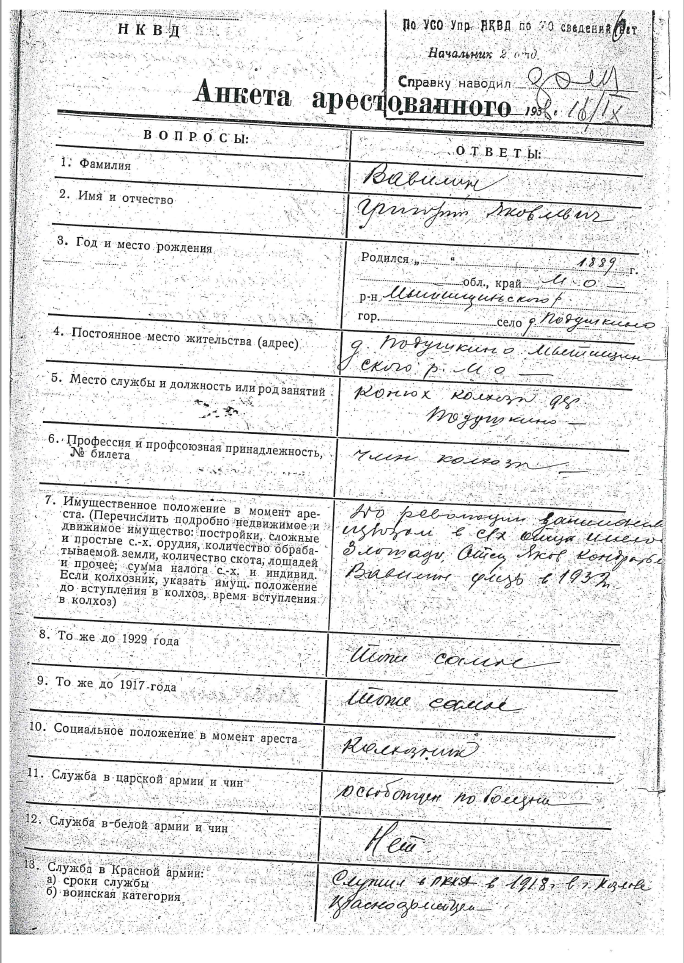 НКВД
По УСО Упр. НКВД по МО сведений нет
Начальник 2 отд.
Справку наводил
1938. 16/IX
Анкета арестованного
ВОПРОСЫ:
ОТВЕТЫ:
1. Фамилия
Вавилин
2. Имя и отчество
Григорий Яковлевич
3. Год и место рождения
Родился „ “ 1889 г.
обл., край М-о
р-н Мытищинского р
гор. село д. Подушкино
4. Постоянное место жительства (адрес)
д. Подушкино Мытищин
ского р. М о
5. Место службы и должность или род занятий
Конюх колхоза дер
Подушкино
6. Профессия и профсоюзная принадлежность,
№ билета
член колхоза
7. Имущественное положение в момент аре-
ста. (Перечислить подробно недвижимое и
движимое имущество: постройки, сложные
и простые с.-х. орудия, количество обраба-
тываемой земли, количество скота, лошадей
и прочее; сумма налога с.-х. и индивид.
Если колхозник, указать имущ. положение
до вступления в колхоз, время вступления
в колхоз)
До революции занимались
извозом в
3 лошади, Отец Яков Кондратье
Вавилин умер в 1932 г.
8. То же до 1929 года
тоже самое
9. То же до 1917 года
тоже самое
10. Социальное положение в момент ареста
Колхозник
11. Служба в царской армии и чин
освобожден по болезни
12. Служба в белой армии и чин
Нет
13. Служба в Красной армии:
а) сроки службы
б) воинская категория
Служил в РККА в 1918 г в г.
красноармейцем